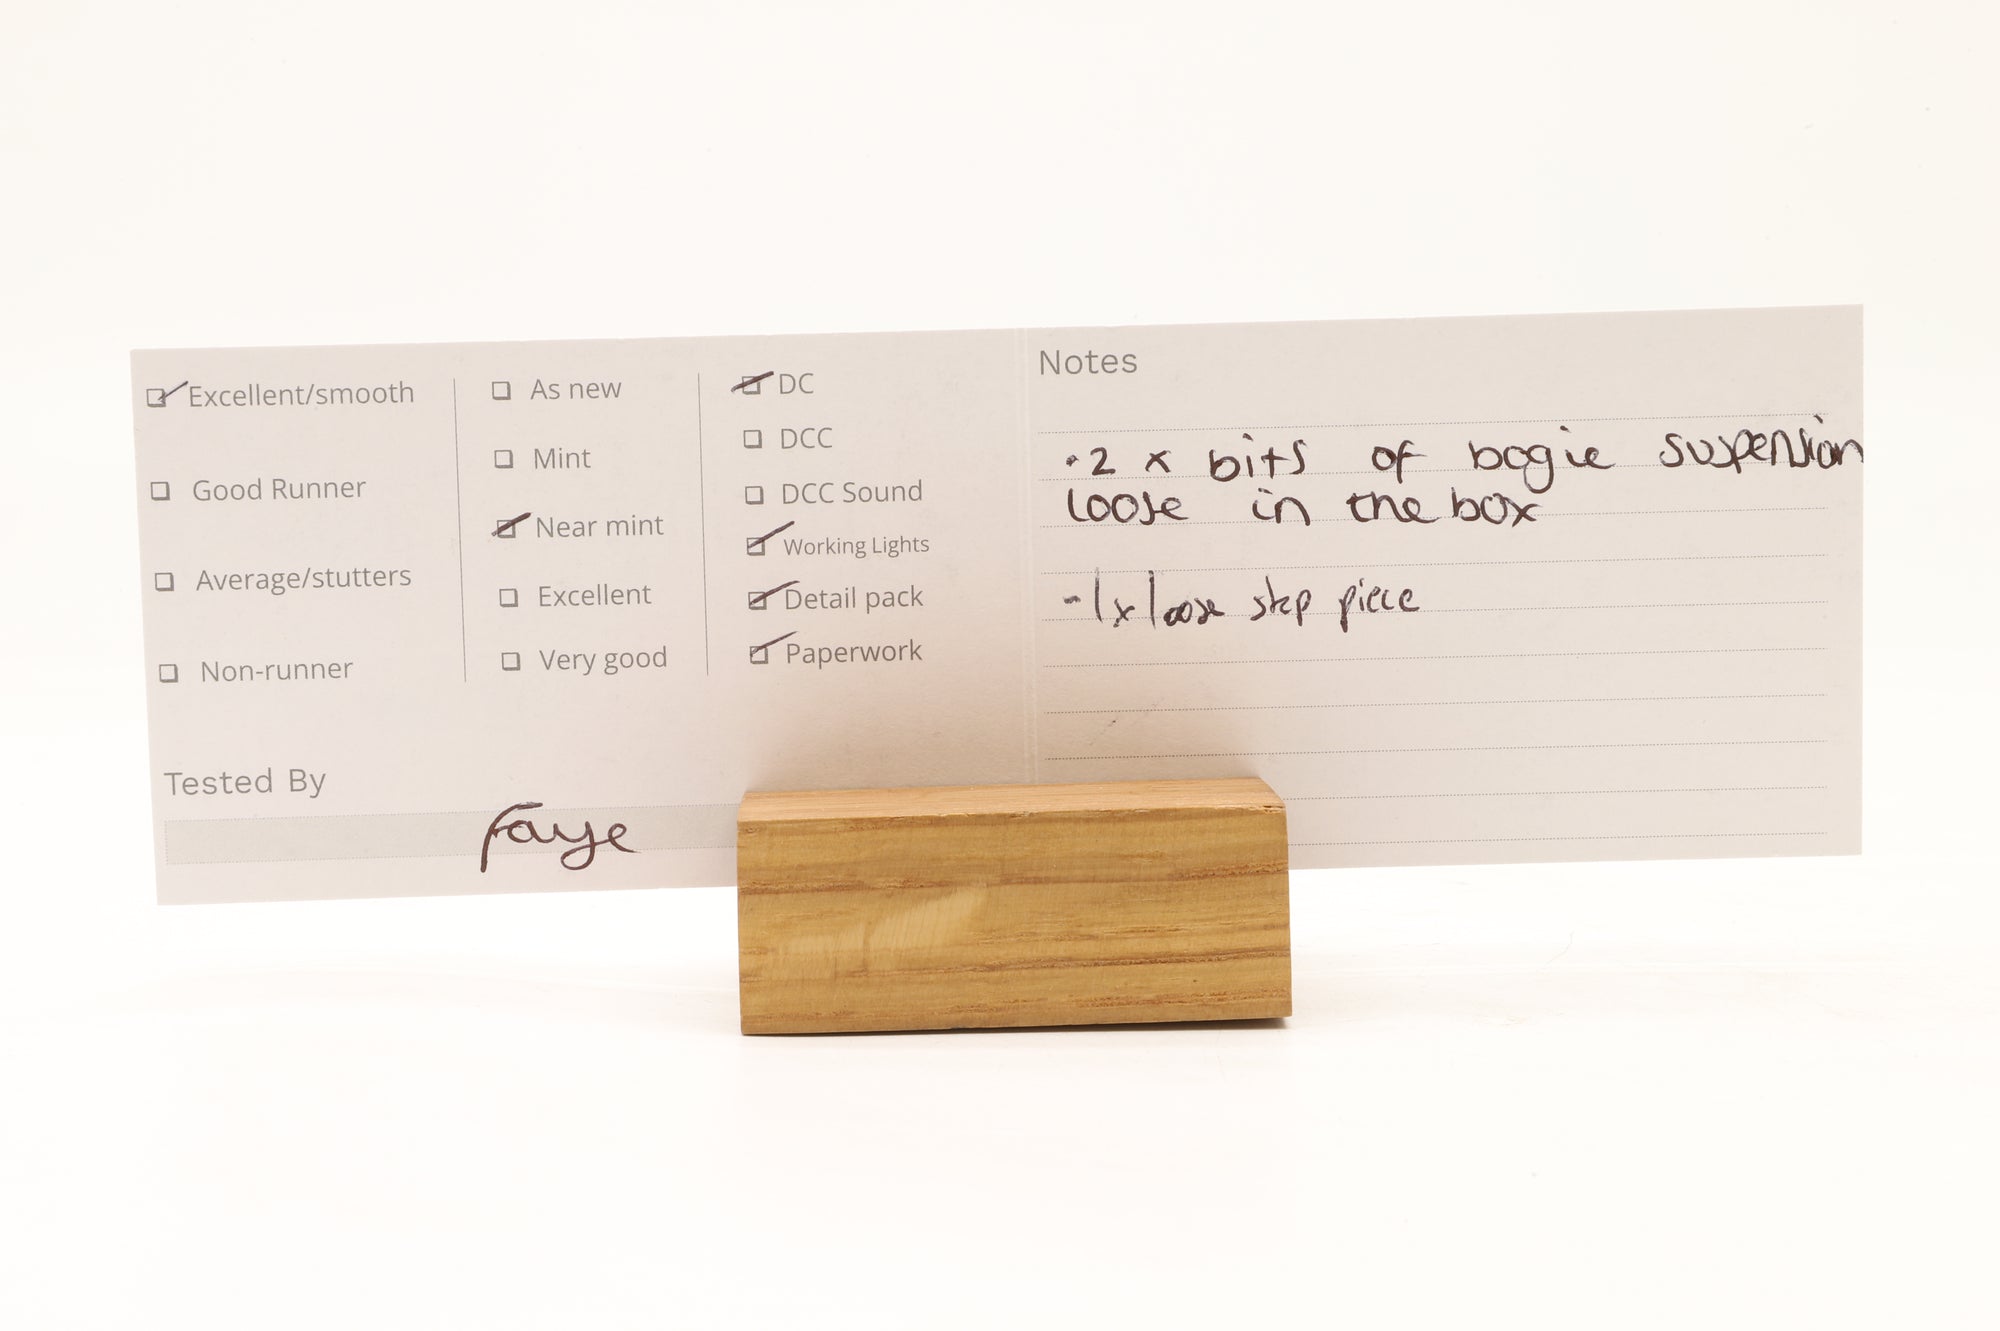 Excellent/smooth
Good Runner
Average/stutters
Non-runner
As new
Mint
Near mint
Excellent
Very good
DC
DCC
DCC Sound
Working Lights
Detail pack
Paperwork
Tested By
Faye
Notes
·2 x bits of bogie suspension
loose in the box
-1x loose step piece